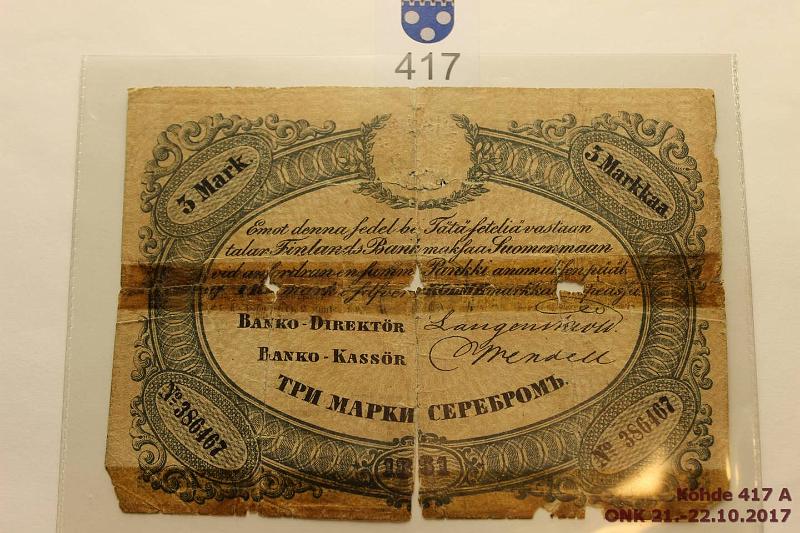 417
3 Mark
3 Markkaa
Emot denna sedel be
talar Finlands Bank
vid anfordran en summa
mark silfver
Tätä seteliä vastaan
maksaa Suomenmaan
Pankki anomuksen pääl
markkaa hopeasja
BANKO-DIREKTÖR
BANKO-KASSÖR Wendell
ТРИ МАРКИ СЕРЕБРОМЪ.
No 386467
No 386467
Kohde 417 A
ONK 21.-22.10.2017